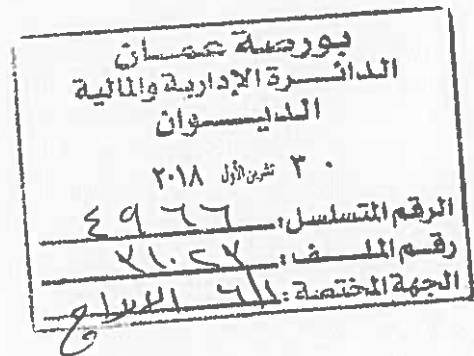 بورصة عمان
الدائرة الإدارية والمالية
الديوان
٣٠ تشرين الأول ٢٠١٨
الرقم المتسلسل: ٤٩٦٦
رقم الملف:
الجهة المختصة: الإدراج